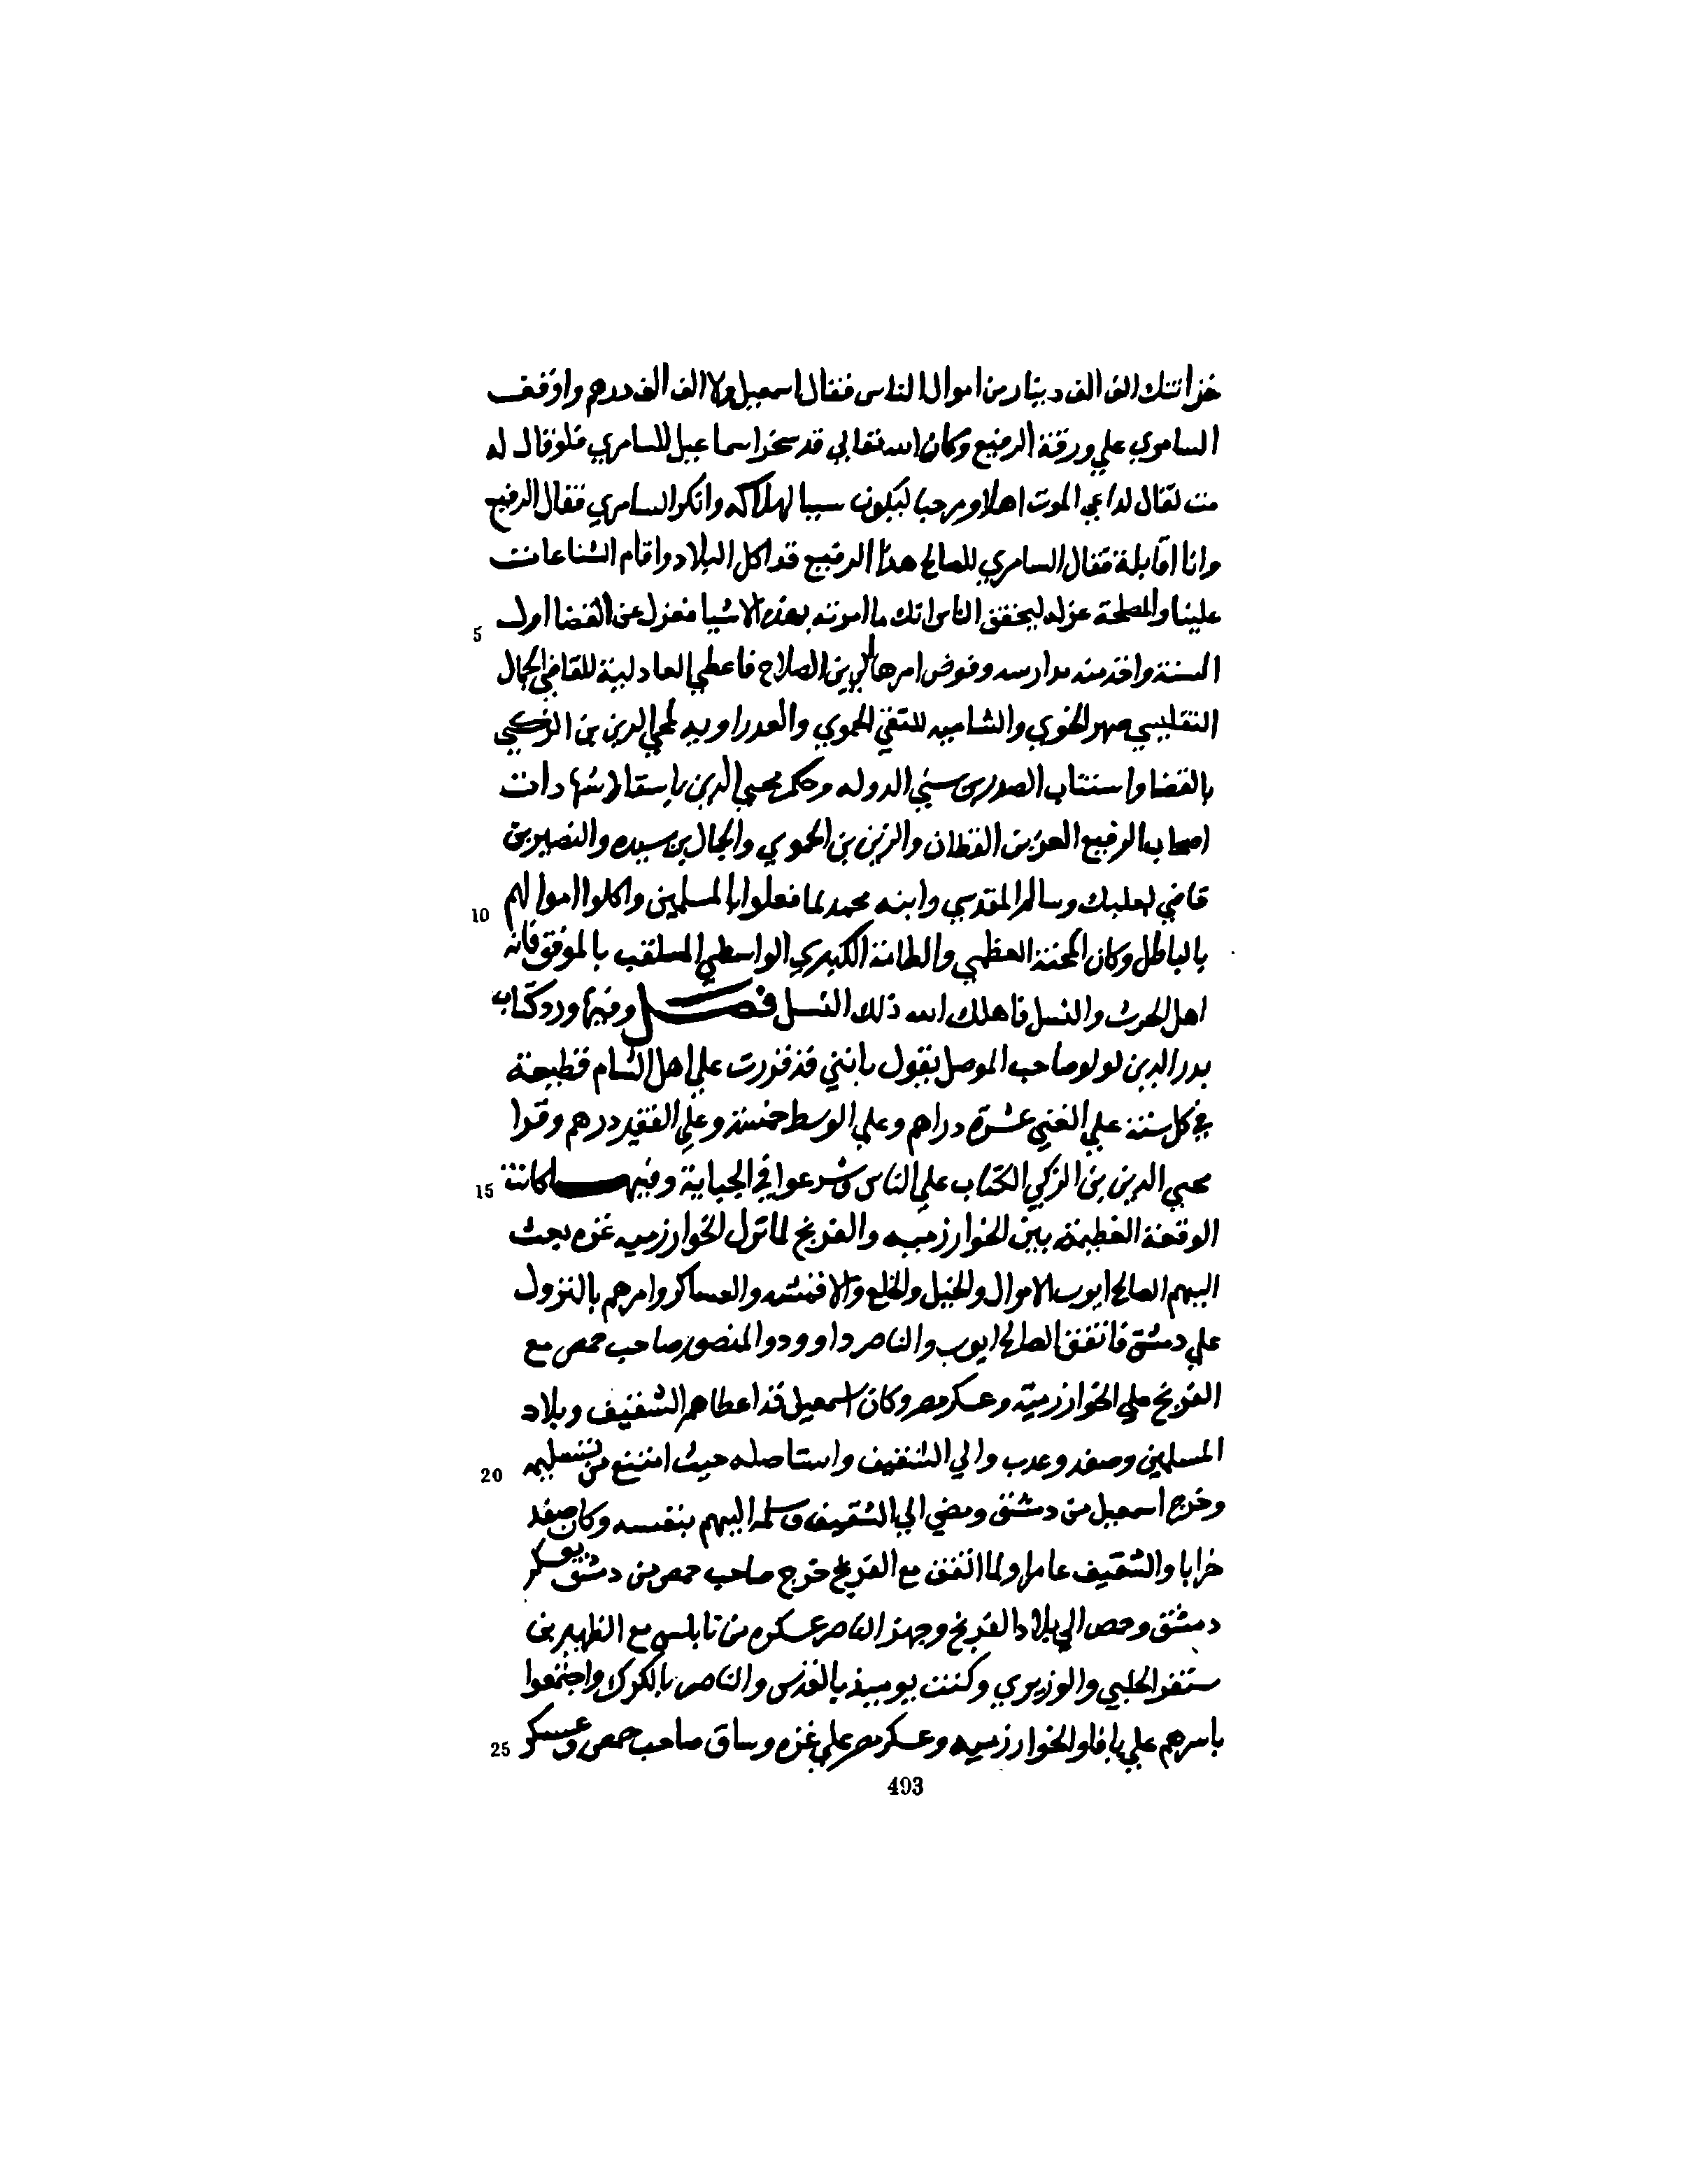 خزانتك الف الف دينار من اموال الناس فقال اسمعيل ولا الف الف درهم واوقف
السامري علي ورقة الرفيع وكان الله تعالي قد سخر اسماعيل للسامري فلو قال له
مت لقال لداعي الموت اهلا ومرحبا ليكون سببا لهلاكه وانكر السامري فقال الرفيع
وانا اقابله فقال السامري للصالح هذا الرفيع قد اكل البلاد واقام الشناعات
علينا والمصلحة عزله ليتحقق الناس انك ما امرته بهذه الاشيا فعزل عن القضا اول
5
السنة واخذ منه مدارسه وفوض امرها الي بن الصلاح فاعطي العادلية للقاضي الكمال
التفليسي صهر الخوي والشاميه للتقي الحموي والعدراويه لمحي الدين بن الزكي
بالقضا واستناب الصدر بن سني الدوله وحكم محيي الدين باسقاط شهادات
اصحاب الرفيع العز بن القطان والزين بن الحموي والجمال بن سيده والنصير بن
قاضي بعلبك وسالم المقدسي وابنه محمد لما فعلوا بالمسلمين واكلوا اموالهم
10
بالباطل وكان المحنة العظمي والطامة الكبري الواسطي الملقب بالموفق فانه
اهل الحرث والنسل فاهلك الله ذلك النسل فصل وفيها ورد كتاب
بدر الدين لولو صاحب الموصل يقول بانني قد قررت علي اهل الشام قطيعة
في كل سنة علي الغني عشرة دراهم وعلي الوسط خمسة وعلي الفقير درهم وقرا
محيي الدين بن الزكي الكتاب علي الناس وشرعوا في الجباية وفيها كانت
15
الوقعة العظيمة بين الخوارزميه والفرنج لما نزل الخوارزميه غزه بعث
اليهم الصالح ايوب الاموال والخيل والخلع والاقمشه والعساكر وامرهم بالنزول
علي دمشق فاتفق الصالح ايوب والناصر داوود والمنصور صاحب حمص مع
الفرنج علي الخوارزمية وعسكر مصر وكان اسمعيل قد اعطاهم الشقيف وبلاد
المسلمين وصفد وعدب والي الشقيف واستاصله حيث امتنع من تسليمه
20
وخرج اسمعيل من دمشق ومضي الي الشقيف وسلمه اليهم بنفسه وكان صفد
خرابا والشقيف عامرا ولما اتفق مع الفرنج خرج صاحب حمص من دمشق بعسكر
دمشق وحمص الي بلاد الفرنج وجهز الناصر عسكره من نابلس مع الظهير بن
سنقر الحلبي والوزيري وكنت يوميذ بالقدس والناصر بالكرك واجتمعوا
باسرهم علي يافا والخوارزميه وعسكر مصر علي غزه وساق صاحب حمص وعسكر
25
493